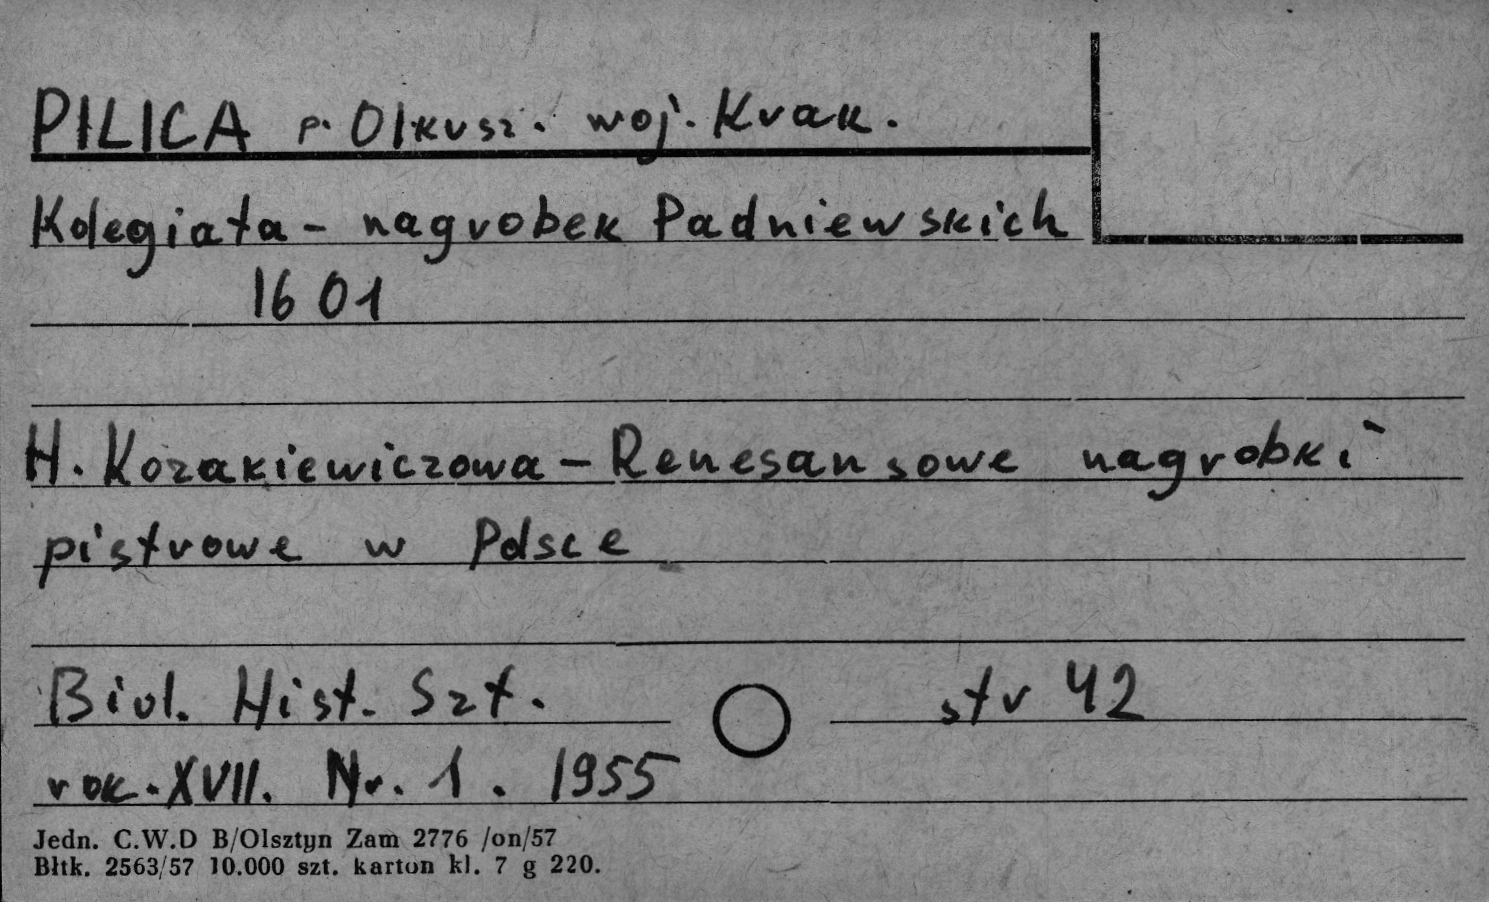 PILICA p. Olkusz. woj. Krak.
Kolegiata - nagrobek Padniewskich
1601
H. Kozakiewiczowa - Renesansowe nagrobki
piętrowe w Polsce
Biul. Hist. Szt.
str 42
rok. XVII. Nr. 1. 1955
Jedn. C.W.D B/Olsztyn Zam 2776 /on/57
Błtk. 2563/57 10.000 szt. karton kl. 7 g 220.